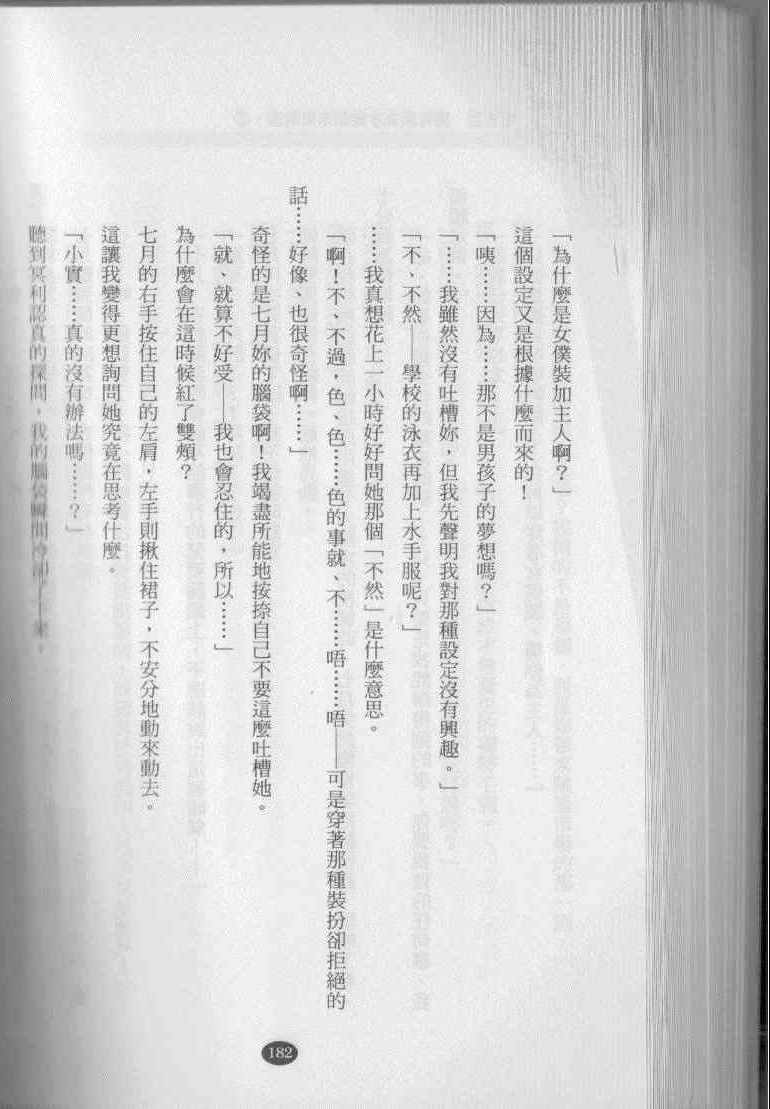 「為什麼是女僕裝加主人啊？」
這個設定又是根據什麼而來的！
「咦……因為……那不是男孩子的夢想嗎？」
「……我雖然沒有吐槽妳，但我先聲明我對那種設定沒有興趣。」
「不、不然——學校的泳衣再加上水手服呢？」
……我真想花上一小時好好問她那個「不然」是什麼意思。
「啊！不、不過，色、色……色的事就、不……唔……唔——可是穿著那種裝扮卻拒絕的
話……好像、也很奇怪啊……」
奇怪的是七月妳的腦袋啊！我竭盡所能地按捺自己不要這麼吐槽她。
「就、就算不好受——我也會忍住的，所以……」
為什麼會在這時候紅了雙頰？
七月的右手按住自己的左肩，左手則揪住裙子，不安分地動來動去。
這讓我變得更想詢問她究竟在思考什麼。
「小實……真的沒有辦法嗎……？」
聽到冥利認真的探問，我的腦袋瞬間冷卻了下來。
182